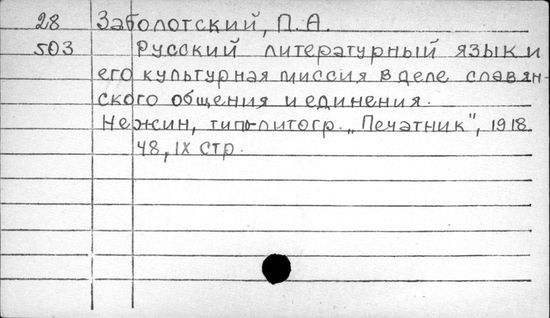 28 Заболотский, П.А.
503 Русский литературный язык и
его культурная миссия в деле славян-
ского общения и единения.
Нежин, типо-литогр. „Печатник", 1918.
48, IX стр.